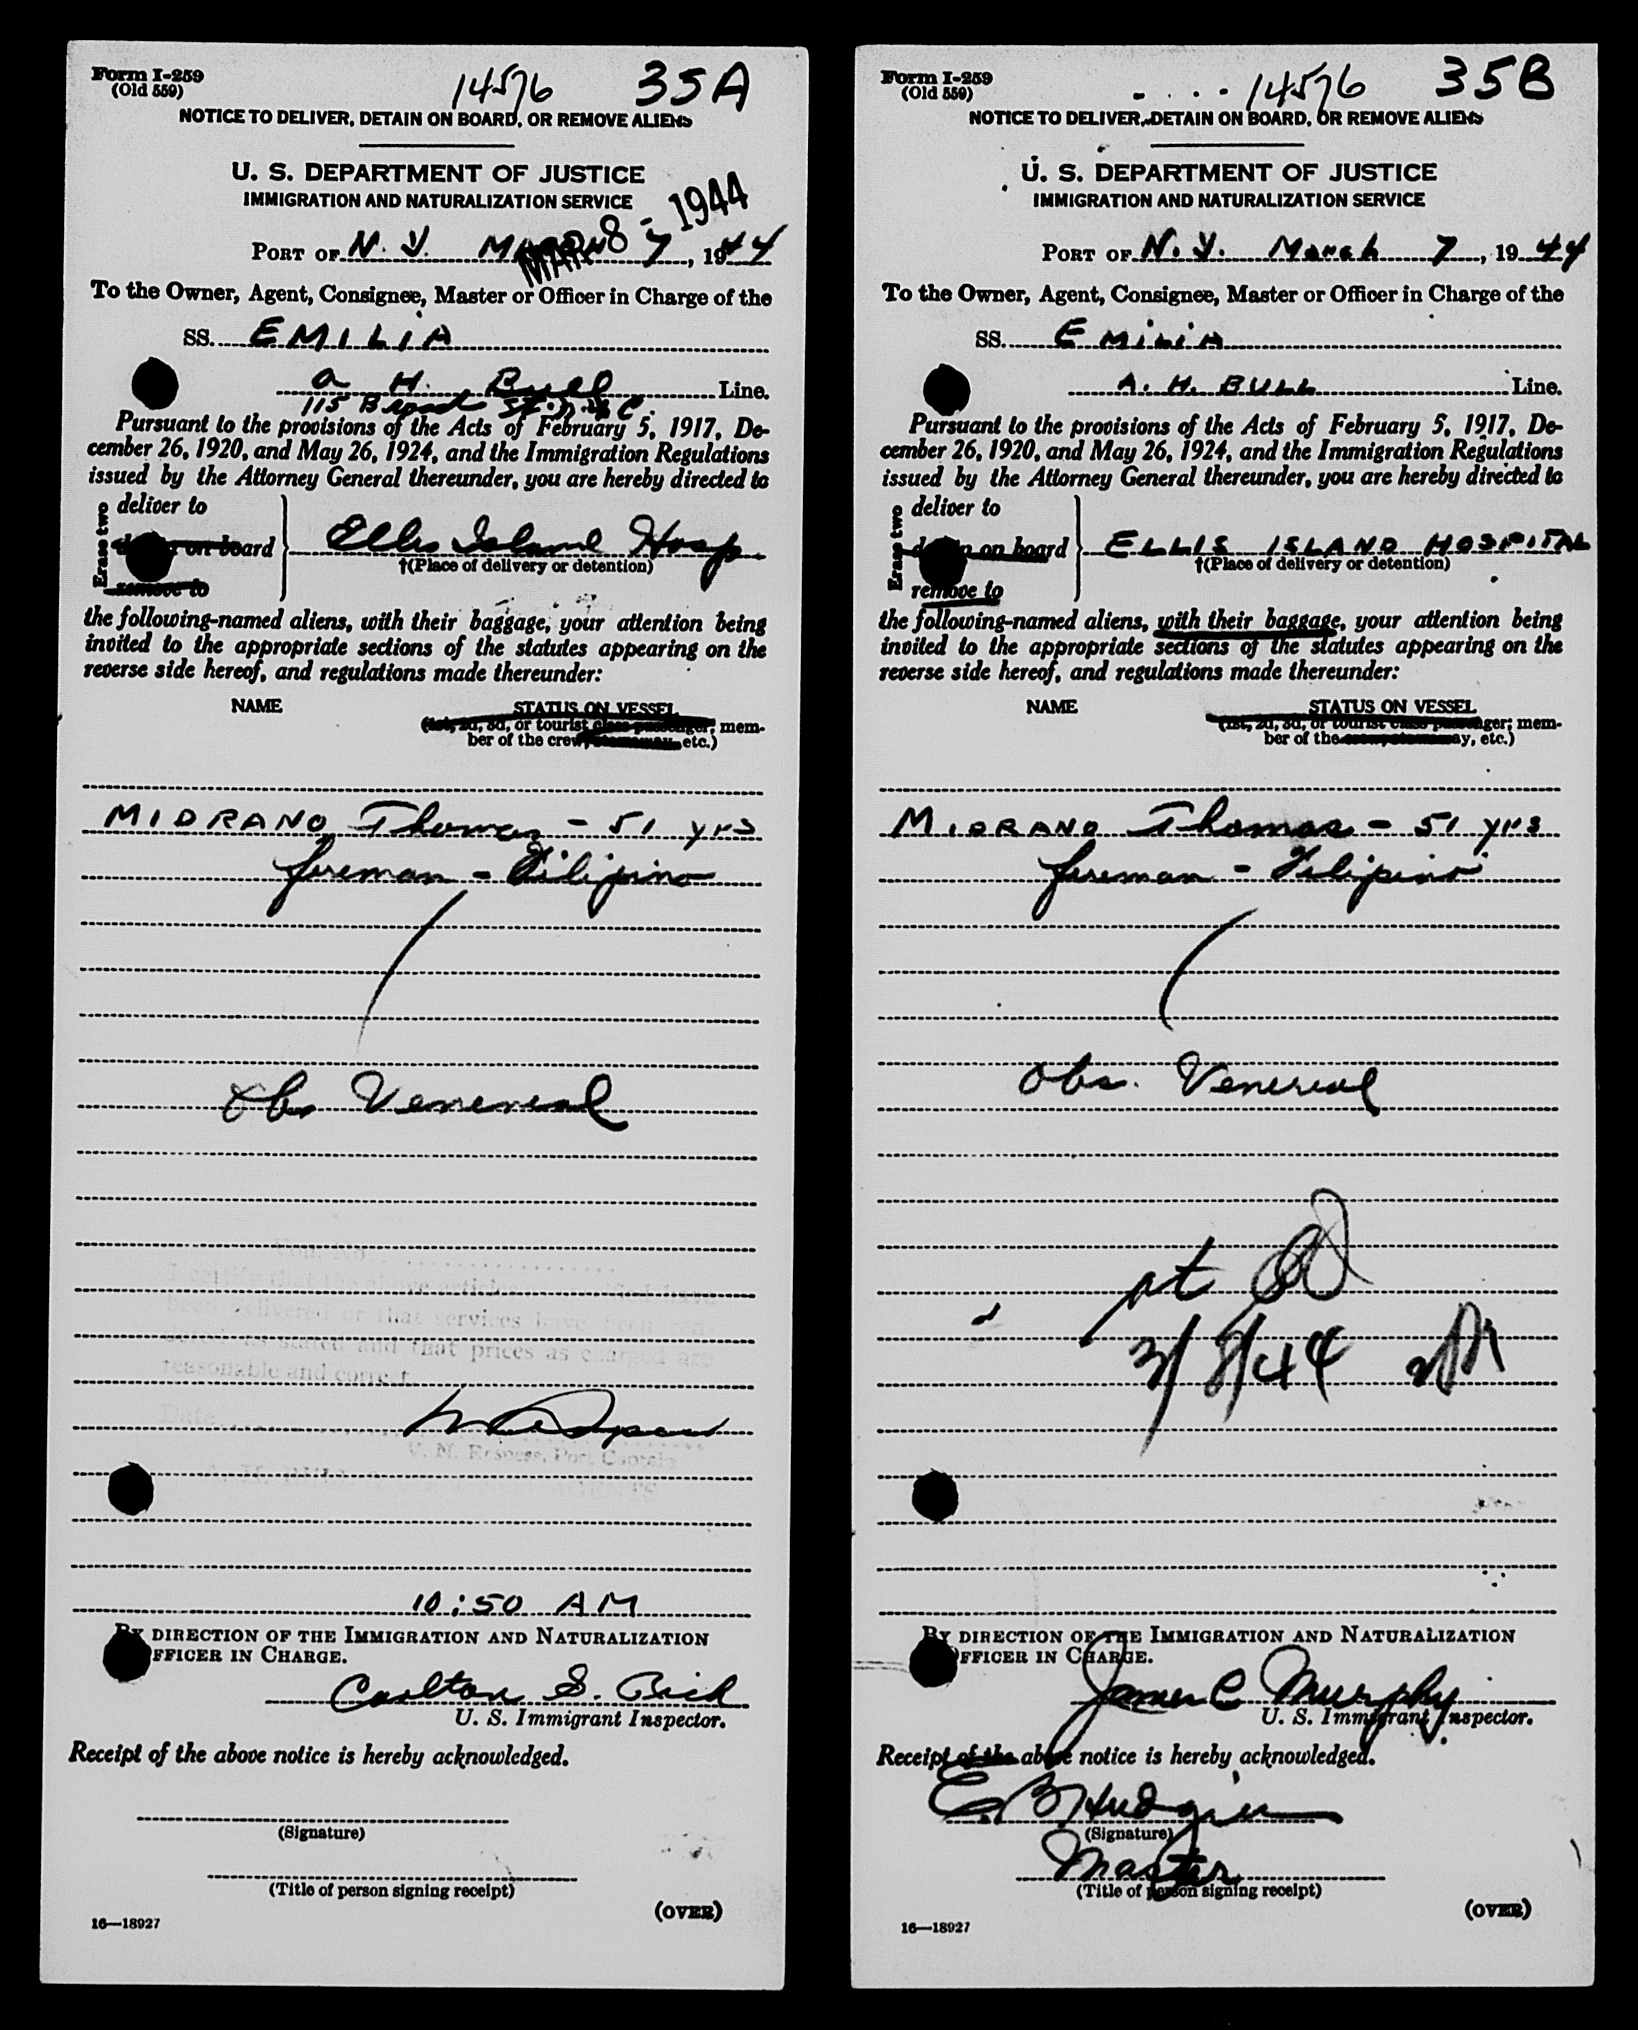 Form I-259
(Old 559)
14576 35A
NOTICE TO DELIVER, DETAIN ON BOARD, OR REMOVE ALIENS
U. S. DEPARTMENT OF JUSTICE
IMMIGRATION AND NATURALIZATION SERVICE
MAR 8 - 1944
PORT OF N. Y. MARCH 7, 1944
To the Owner, Agent, Consignee, Master or Officer in Charge of the
SS. EMILIA
A H. Bull Line.
115 Broad St. N.Y.C.
Pursuant to the provisions of the Acts of February 5, 1917, De-
cember 26, 1920, and May 26, 1924, and the Immigration Regulations
issued by the Attorney General thereunder, you are hereby directed to
Erase two
deliver to
on board
remove to
Ellis Island Hosp
†(Place of delivery or detention)
the following-named aliens, with their baggage, your attention being
invited to the appropriate sections of the statutes appearing on the
reverse side hereof, and regulations made thereunder:
NAME STATUS ON VESSEL
(1st, 2d, 3d, or tourist class passenger; mem-
ber of the crew, stowaway, etc.)
MIDRANO Thomas - 51 yrs
fireman - Filipino
Obs Venereal
I certify that the above articles have
been delivered or that services have been
as stated and that prices as charged are
reasonable and correct.
Date
V. M. Espess, Port Captain
10:50 AM
BY DIRECTION OF THE IMMIGRATION AND NATURALIZATION
OFFICER IN CHARGE.
Carlton S.
U. S. Immigrant Inspector.
Receipt of the above notice is hereby acknowledged.
(Signature)
(Title of person signing receipt)
(OVER)
16—18927
Form I-259
(Old 559)
14576 35B
NOTICE TO DELIVER, DETAIN ON BOARD, OR REMOVE ALIENS
U. S. DEPARTMENT OF JUSTICE
IMMIGRATION AND NATURALIZATION SERVICE
PORT OF N. Y. March 7, 1944
To the Owner, Agent, Consignee, Master or Officer in Charge of the
SS. EMILIA
A. H. BULL Line.
Pursuant to the provisions of the Acts of February 5, 1917, De-
cember 26, 1920, and May 26, 1924, and the Immigration Regulations
issued by the Attorney General thereunder, you are hereby directed to
Erase two
deliver to
on board
remove to
ELLIS ISLAND HOSPITAL
†(Place of delivery or detention)
the following-named aliens, with their baggage, your attention being
invited to the appropriate sections of the statutes appearing on the
reverse side hereof, and regulations made thereunder:
NAME STATUS ON VESSEL
(1st, 2d, 3d, or tourist class passenger; mem-
ber of the crew, stowaway, etc.)
MIDRANO Thomas - 51 yrs
fireman - Filipino
Obs. Venereal
pt
3/8/44
BY DIRECTION OF THE IMMIGRATION AND NATURALIZATION
OFFICER IN CHARGE.
James C Murphy
U. S. Immigrant Inspector.
Receipt of the above notice is hereby acknowledged.
E. B. Hudgins
(Signature)
Master
(Title of person signing receipt)
(OVER)
16—18927